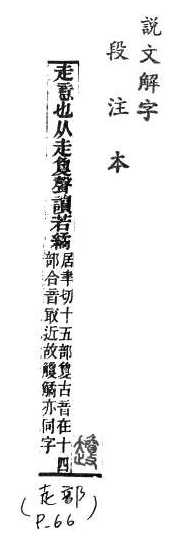 說文解字
段注本
走意也从走敻聲讀若繘
居聿切十五部敻古音在十四
部合音㝡近故觼亦同字
(走部
P.66)